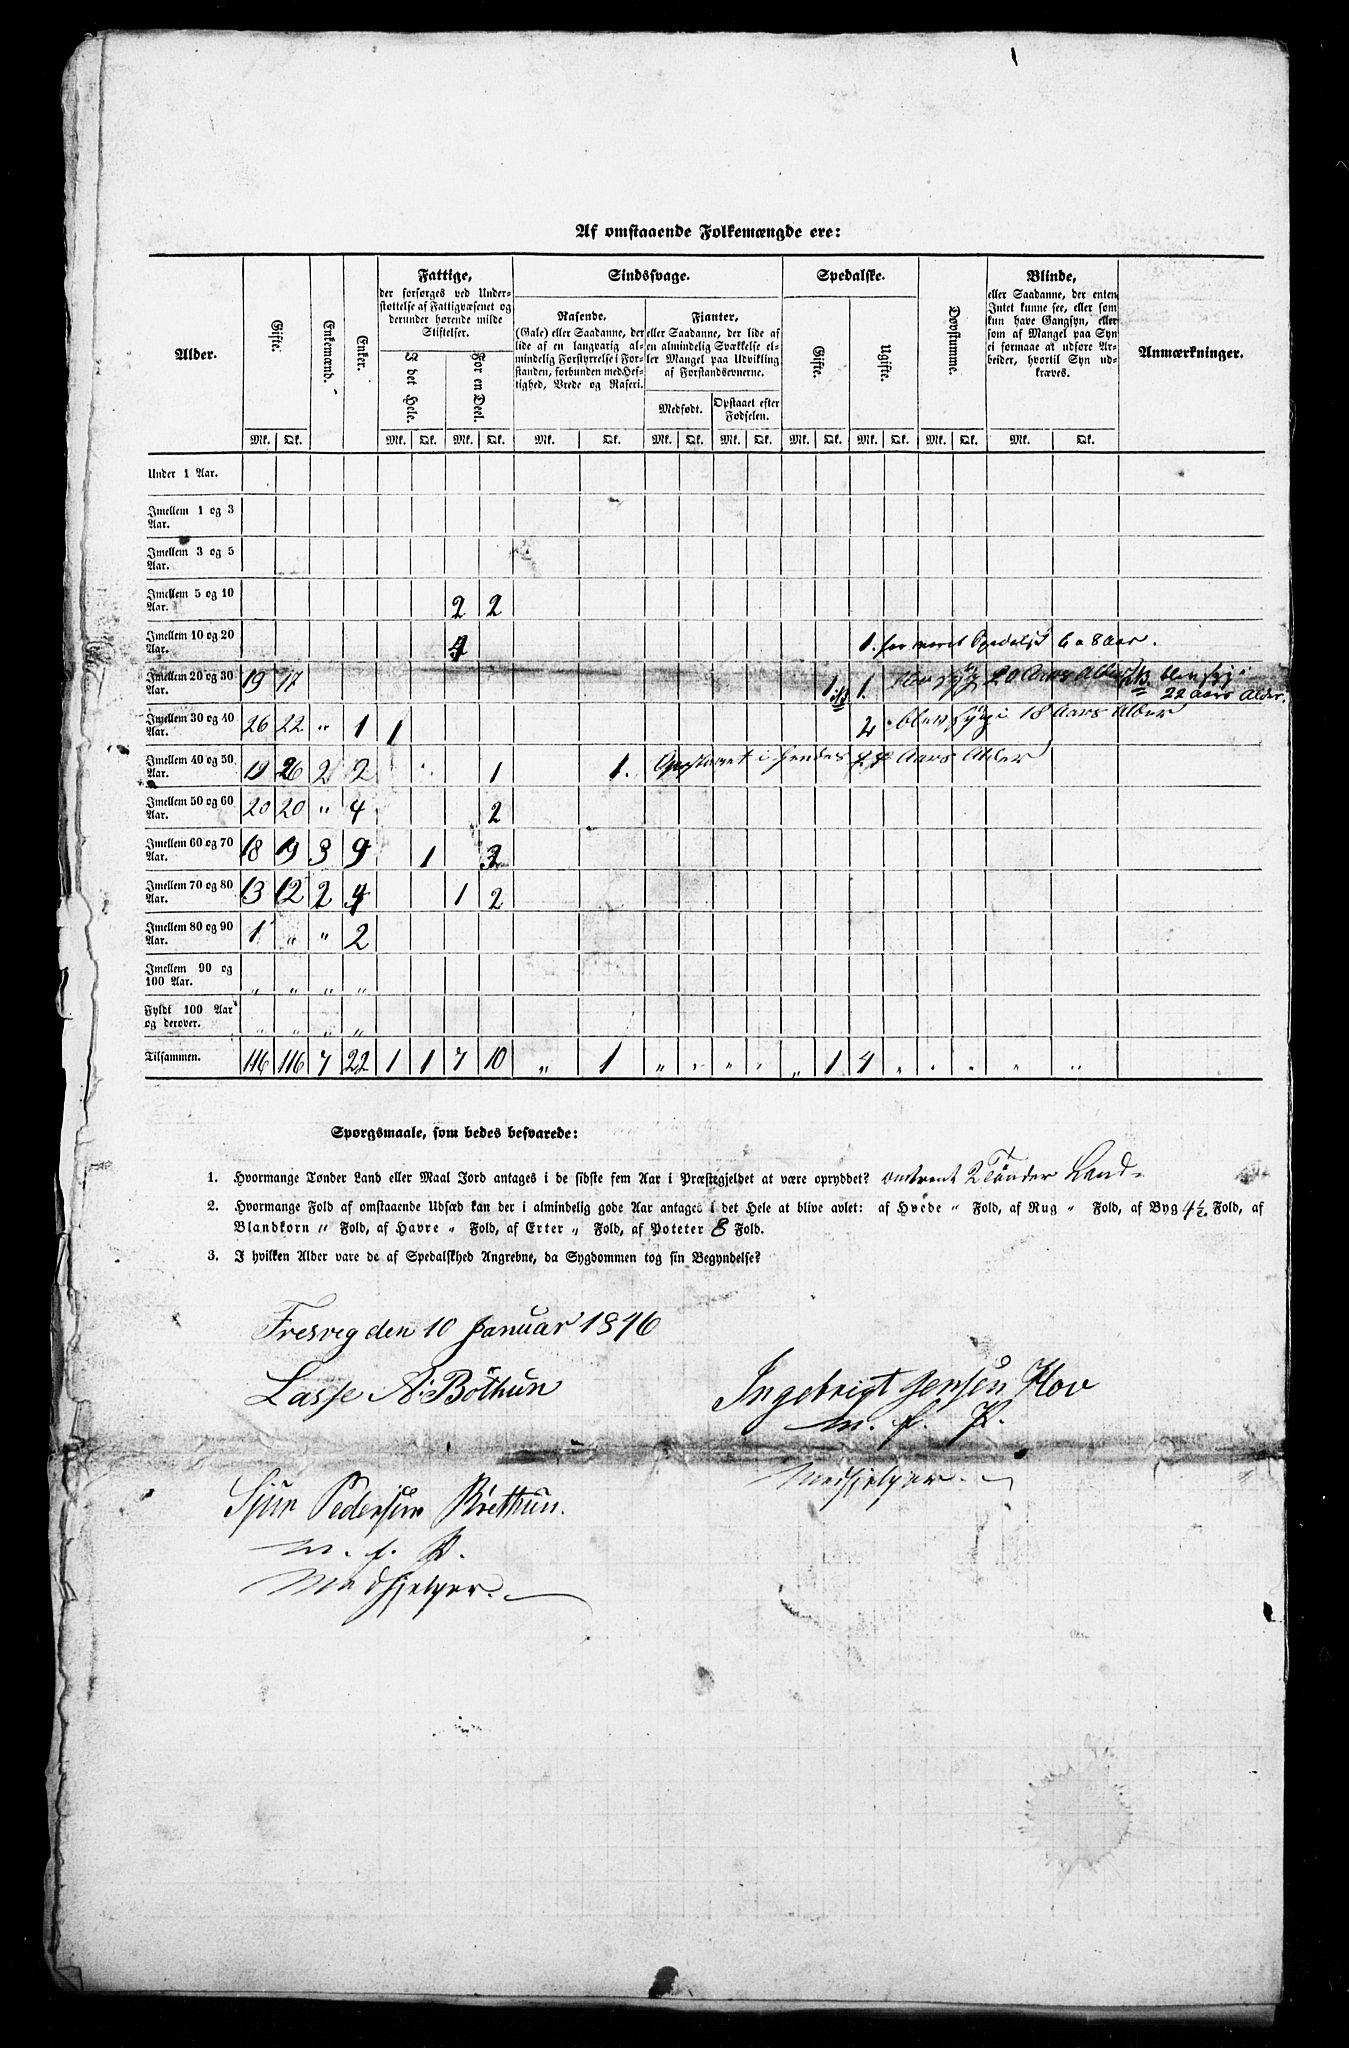 Af omstaaende Folkemængde ere:
Alder.
Gifte.
Enkemænd.
Enker.
Fattige,
der forsørges ved Under-
støttelse af Fattigvæsenet og
derunder hørende milde
Stiftelser.
I det Hele.
For en Deel.
Sindssvage.
Rasende.
(Gale) eller Saadanne, der
lide af en langvarig al-
mindelig Forstyrrelse i For-
standen, forbunden med Hef-
tighed, Vrede og Raseri.
Fianter,
eller Saadanne, der lide af
en almindelig Svækkelse el-
ler Mangel paa Udvikling
af Forstandsevnerne.
Medfødt.
Opstaaet efter
Fødselen.
Spedalske.
Gifte.
Ugifte.
Døvstumme.
Blinde,
eller Saadanne, der enten
Intet kunne see, eller som
kun have Gangsyn, eller
som af Mangel paa Syn
ei formaae at udføre Ar-
beider, hvortil Syn ud-
kræves.
Anmærkninger.
Mk. Qk. Mk. Qk. Mk. Qk. Mk. Qk. Mk. Qk. Mk. Qk. Mk. Qk. Mk. Qk. Mk. Qk. Mk. Qk.
Under 1 Aar.
Imellem 1 og 3
Aar.
Imellem 3 og 5
Aar.
Imellem 5 og 10
Aar. 2 2
Imellem 10 og 20
Aar. 4 1. har været Spedalsk 6 a 8 Aar.
Imellem 20 og 30
Aar. 19 17 1 NB 1. blev syg i 20 Aars Alder NB. blev syg i
22 Aars Alder.
Imellem 30 og 40
Aar. 26 22 " 1 1 2 blev syg i 18 Aars Alder
Imellem 40 og 50
Aar. 19 26 2 2 1 1. Opstaaet i hendes Aars Alder
Imellem 50 og 60
Aar. 20 20 " 4 2
Imellem 60 og 70
Aar. 18 19 3 9 1 3
Imellem 70 og 80
Aar. 13 12 2 4 1 2
Imellem 80 og 90
Aar. 1 " " 2
Imellem 90 og
100 Aar. " " " "
Fyldt 100 Aar
og derover. " " " "
Tilsammen. 116 116 7 22 1 1 7 10 " 1 " " " " " 1 4 " " " " "
Spørgsmaale, som bedes besvarede:
1. Hvormange Tønder Land eller Maal Jord antages i de sidste fem Aar i Præstegjeldet at være opryddet? omtrent 2 Tönder Land.
2. Hvormange Fold af omstaaende Udsæd kan der i almindelig gode Aar antages i det Hele at blive avlet: af Hvede " Fold, af Rug " Fold, af Byg 4½ Fold, af
Blandkorn " Fold, af Havre " Fold, af Erter " Fold, af Poteter 8 Fold.
3. I hvilken Alder vare de af Spedalskhed Angrebne, da Sygdommen tog sin Begyndelse?
Fresvig den 10 Januar 1846
Lasse A: Böthun
Ingebrigt Jensen Hov
m. f. P.
Medhjelper.
Sjur Pedersen Böethun.
m. f. P.
Medhjelper.